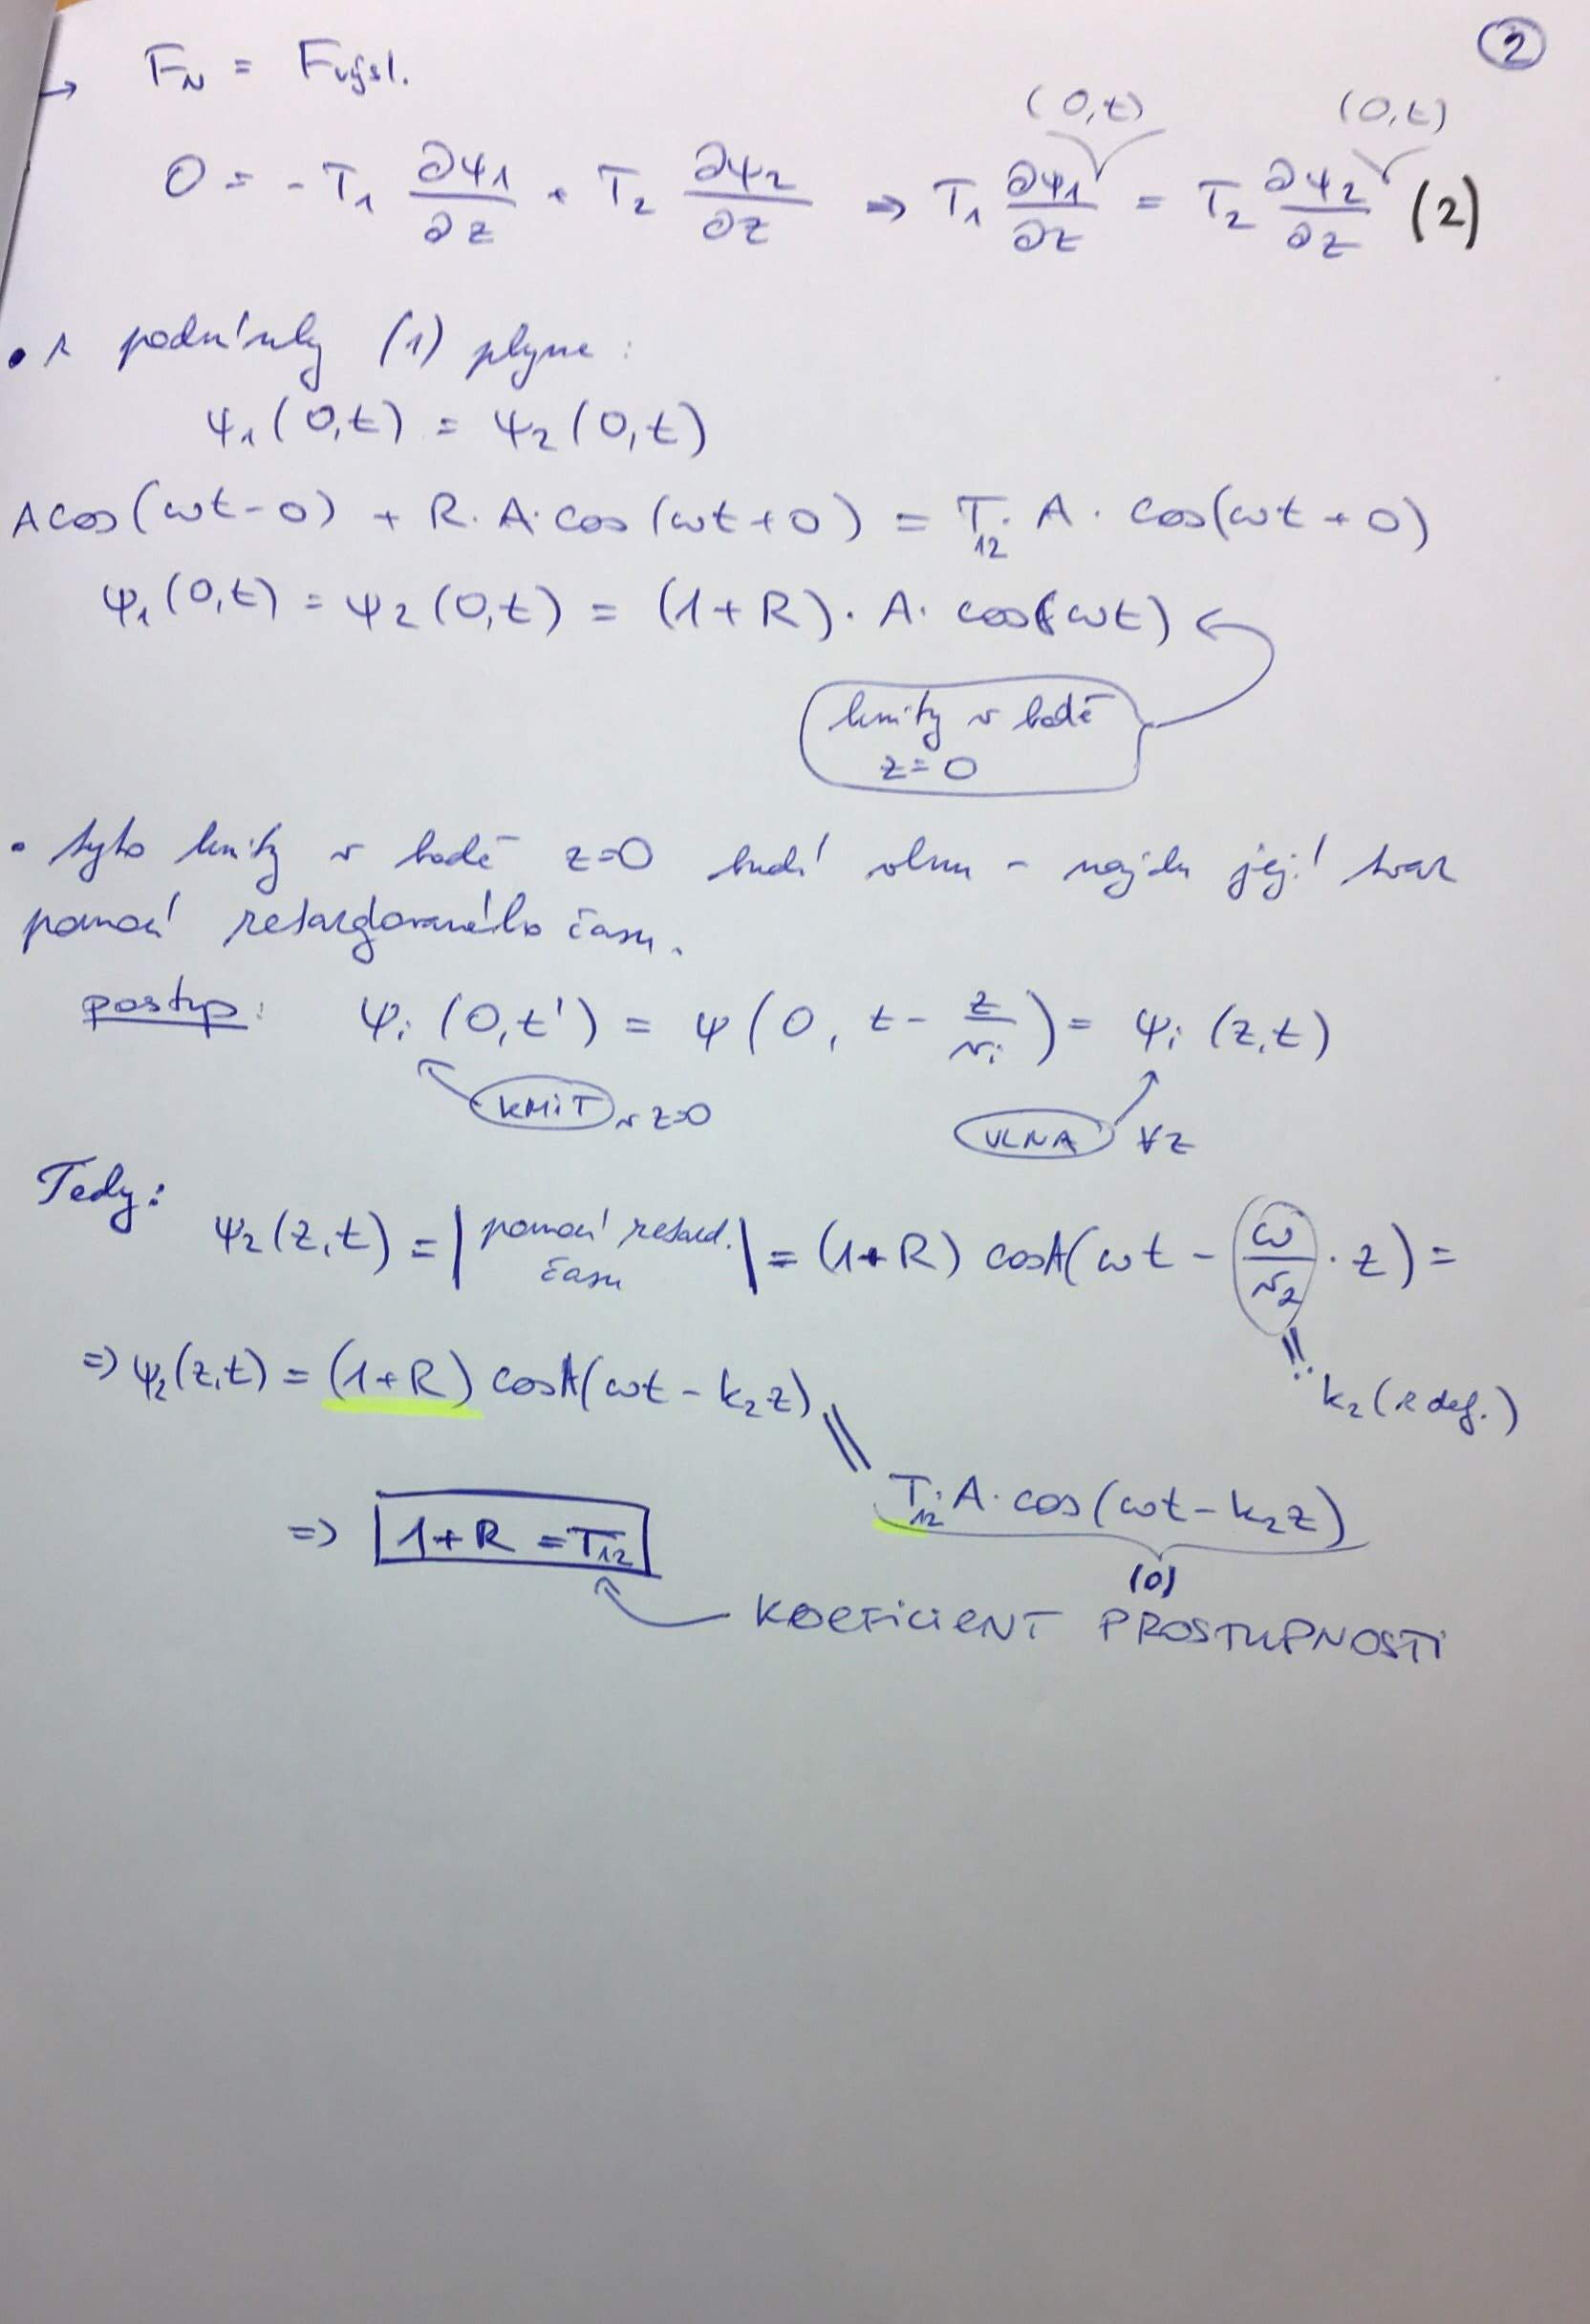 2
→ F_N = F_výsl.
(0,t) (0,t)
0 = - T₁ ∂ψ₁/∂z + T₂ ∂ψ₂/∂z ⇒ T₁ ∂ψ₁/∂z = T₂ ∂ψ₂/∂z (2)
• z podmínky (1) plyne:
ψ₁(0,t) = ψ₂(0,t)
A cos(ωt-0) + R·A·cos(ωt+0) = T₁₂·A·cos(ωt+0)
ψ₁(0,t) = ψ₂(0,t) = (1+R)·A·cos(ωt)
kmity v bodě
z=0
• tyto kmity v bodě z=0 budí vlnu - najdu její tvar
pomocí retardovaného času.
postup: ψᵢ(0,t') = ψ(0, t - z/vᵢ) = ψᵢ(z,t)
KMIT v z=0 VLNA ∀z
Tedy:
ψ₂(z,t) = | pomocí retard. času | = (1+R) cosA(ωt - ω/v₂ · z) =
⇒ ψ₂(z,t) = (1+R) cosA(ωt - k₂z)
k₂ (z def.)
T₁₂·A·cos(ωt - k₂z)
(0)
⇒ 1+R = T₁₂
KOEFICIENT PROSTUPNOSTI